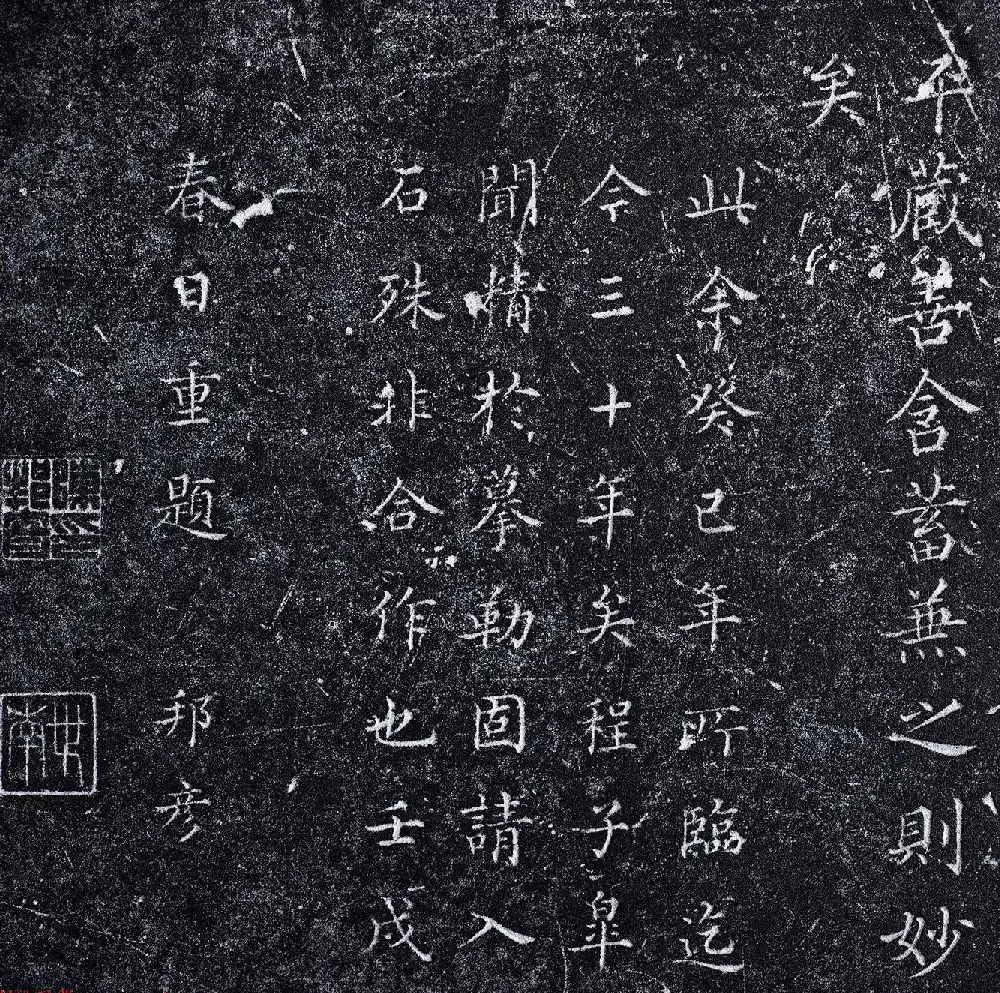 平藏善含蓄兼之則妙
矣
此余癸已年所臨迄
今三十年矣程子皐
聞精於摹勒固請入
石殊非合作也壬戌
春日重題 邦彦